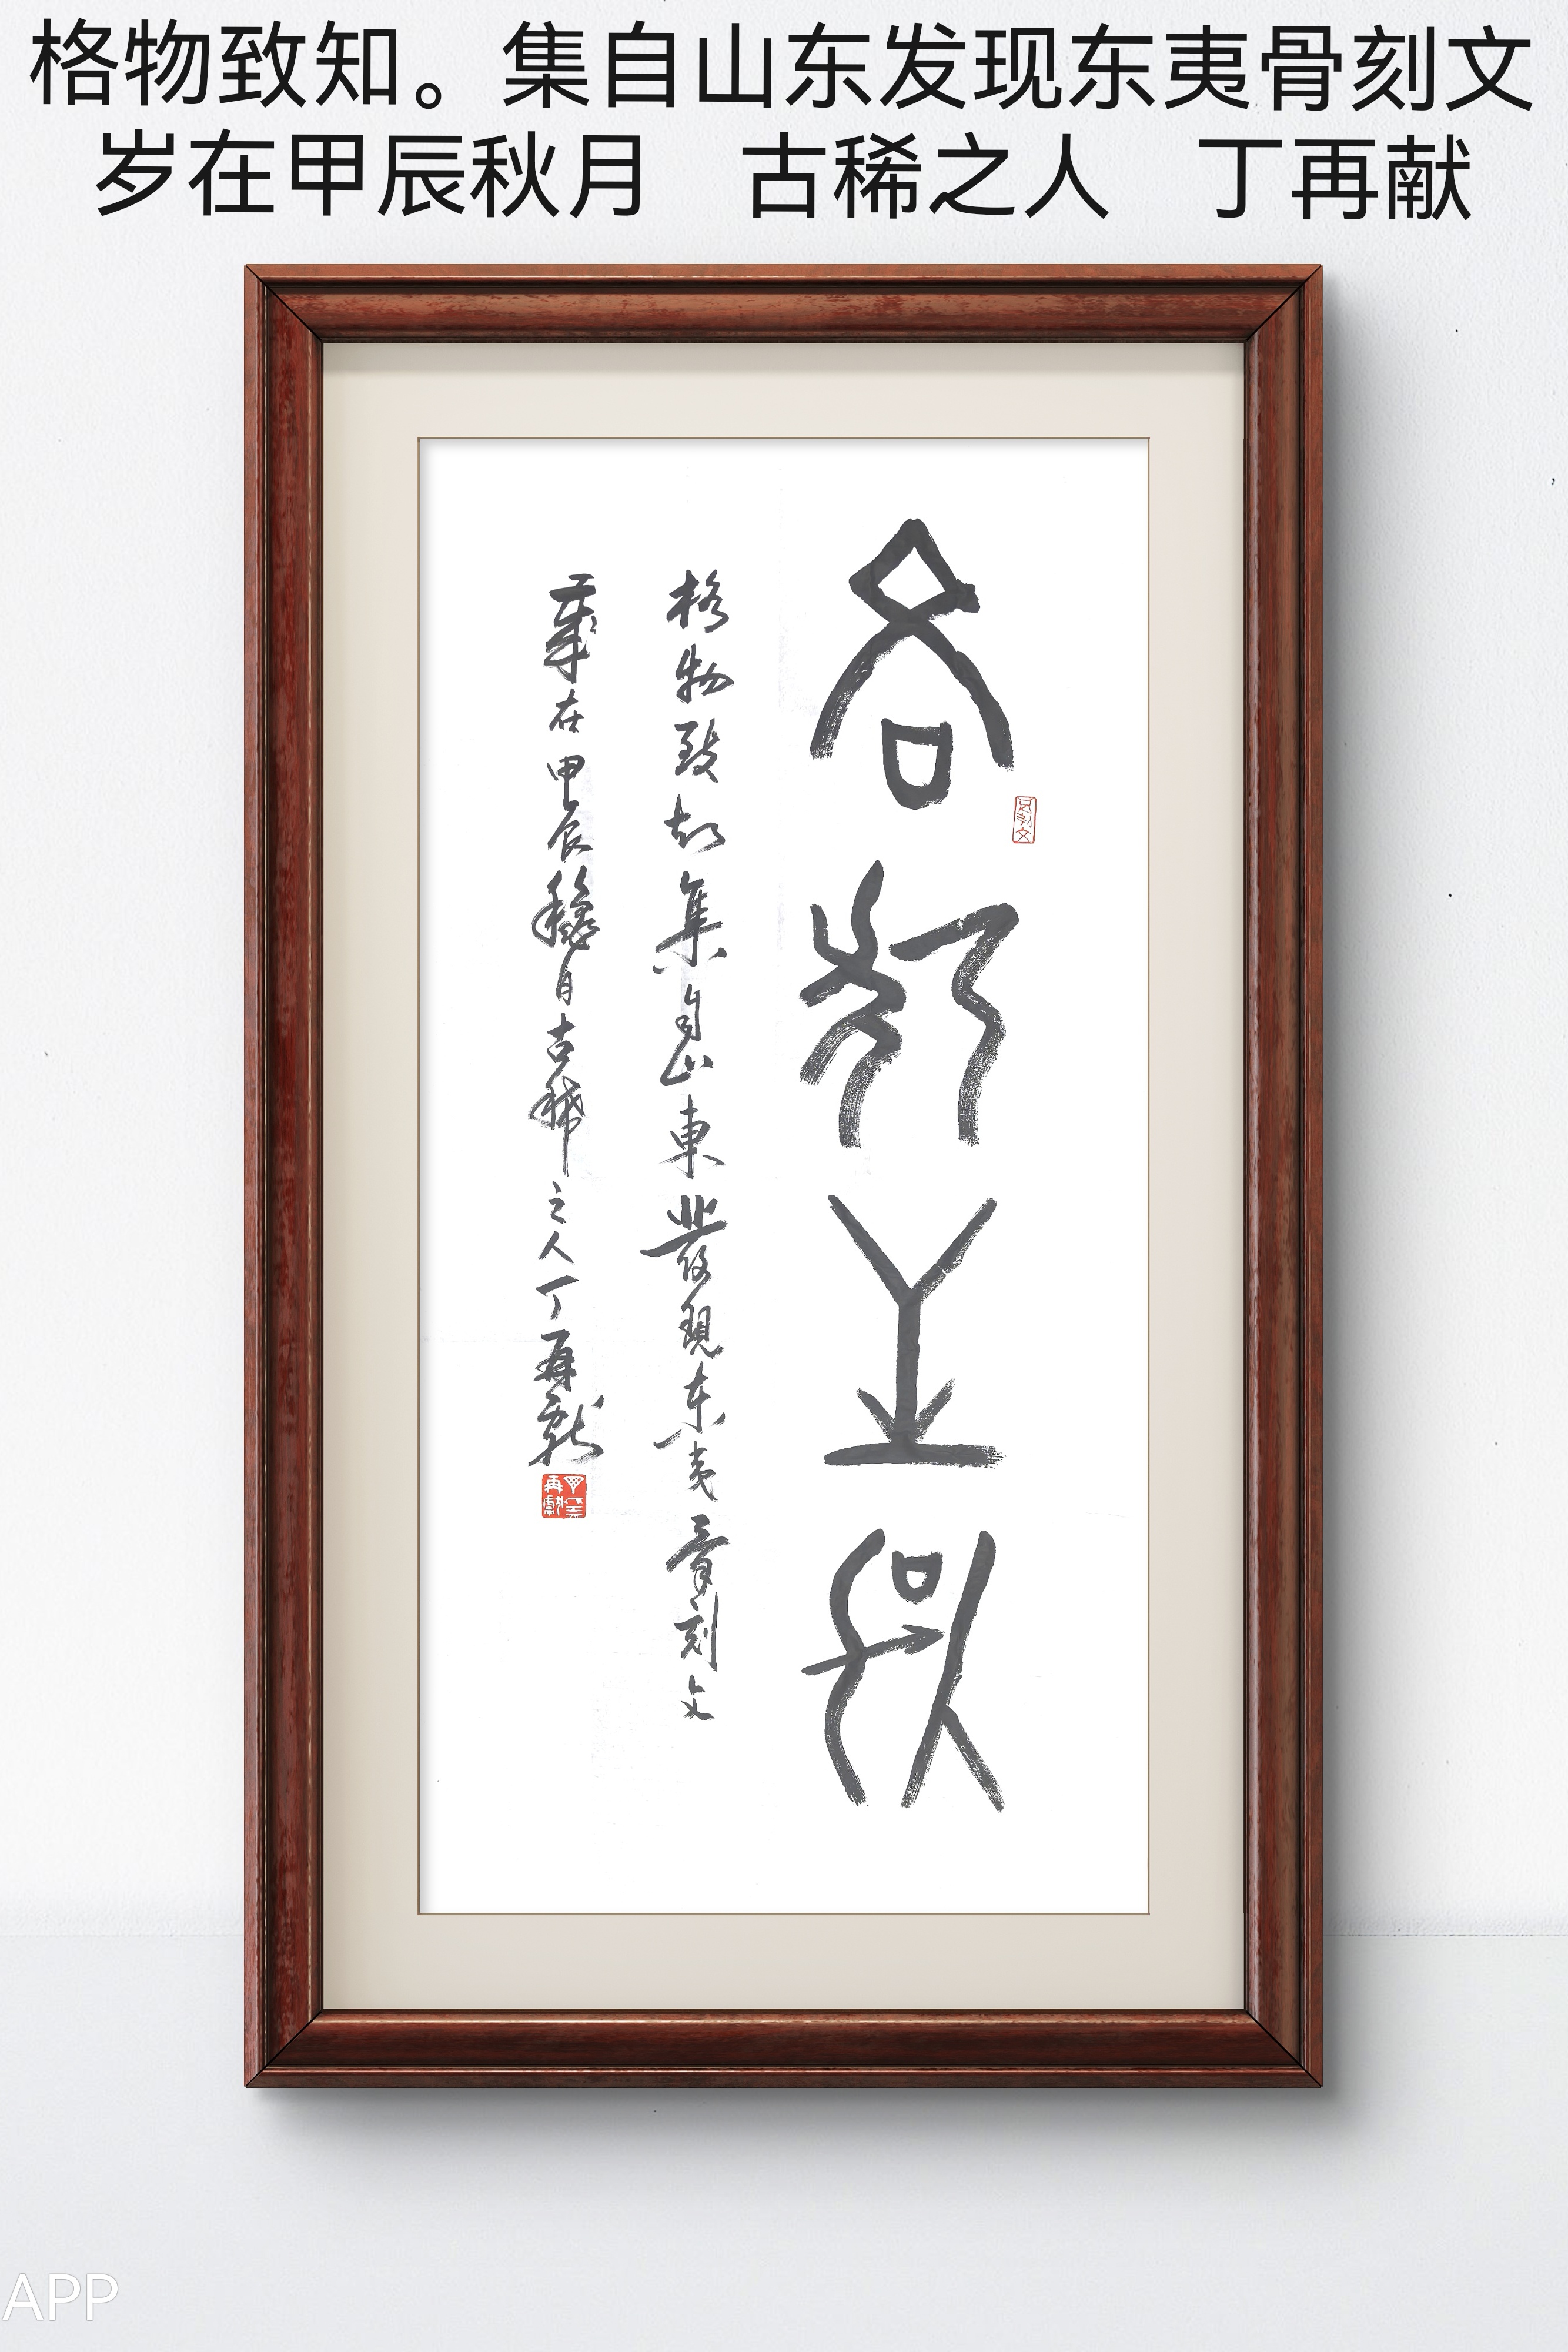 格物致知。集自山东发现东夷骨刻文
岁在甲辰秋月 古稀之人 丁再献
格物致知集自山東發現东夷骨刻文
歲在甲辰穐月古稀之人丁再献
APP